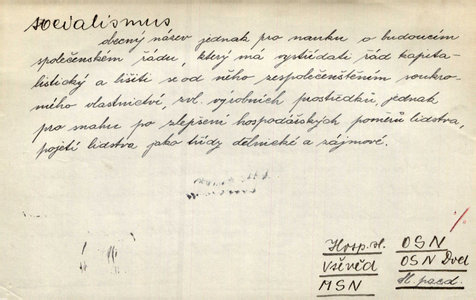 socialismus
obecný název jednak pro nauku o budoucím
společenském řádu, který má vystřídati řád kapita-
listický a lišiti se od něho zespolečenštěním soukro-
mého vlastnictví, zvl. výrobních prostředků, jednak
pro snahu po zlepšení hospodářských poměrů lidstva,
pojetí lidstva jako třídy dělnické a zájmové.
Hosp. sl. OSN
Vševěd OSN Dod
MSN